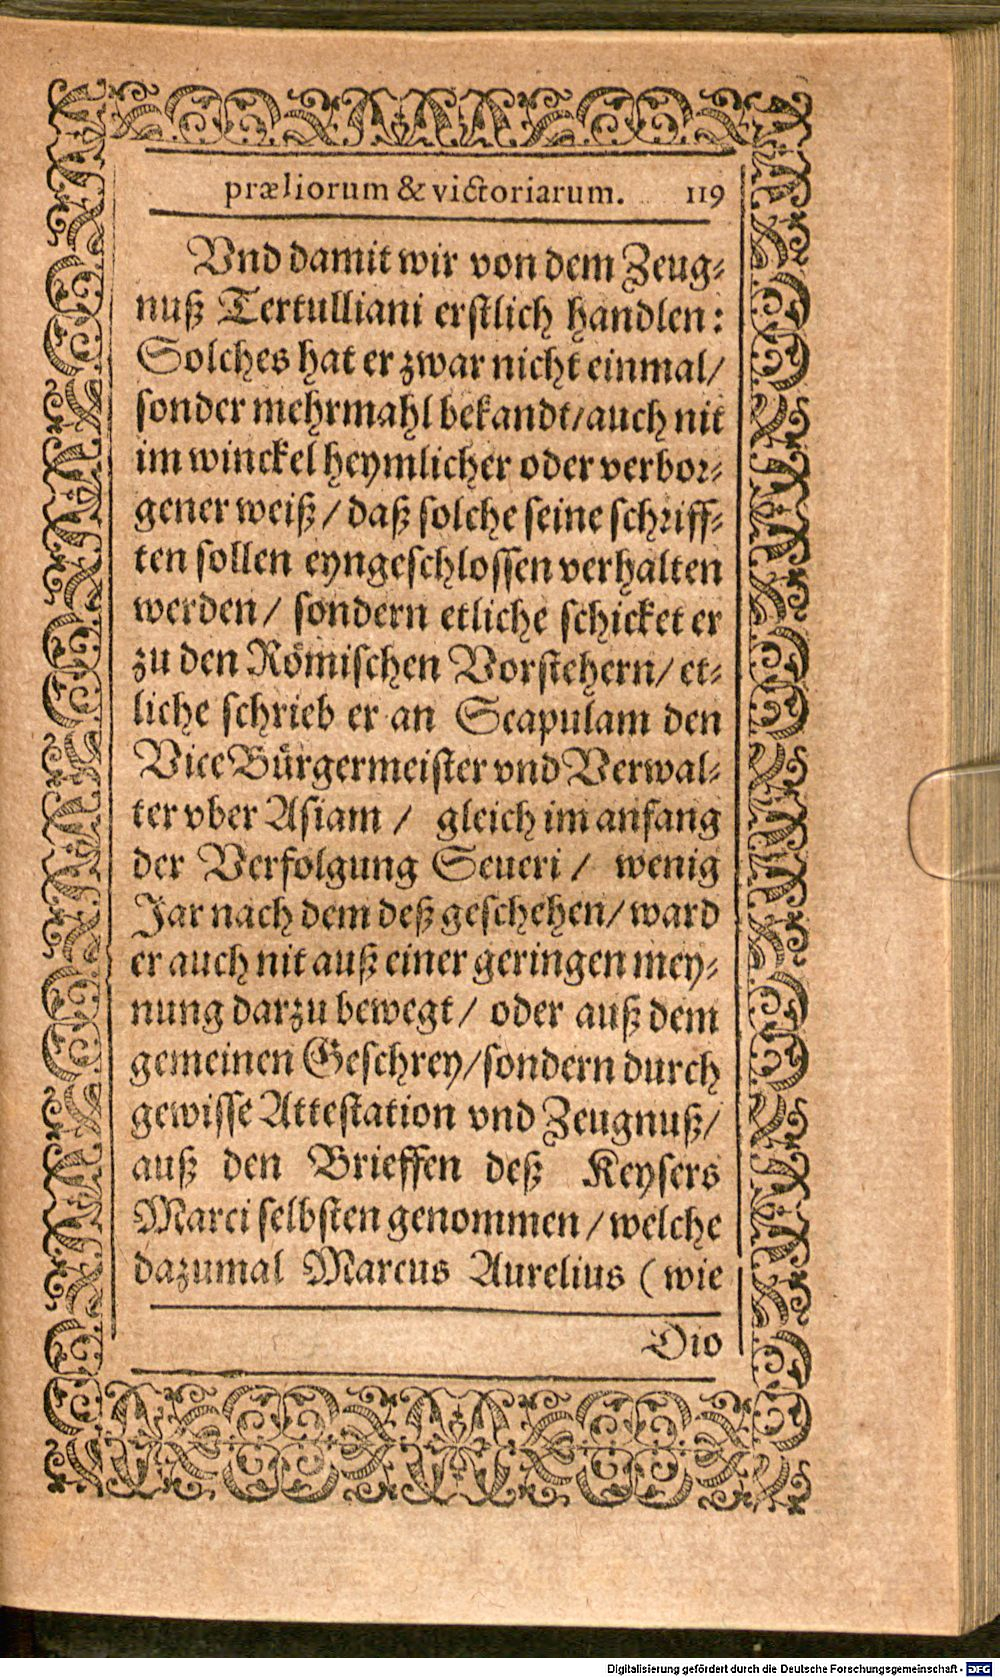 præliorum & victoriarum. 119
Vnd damit wir von dem Zeug-
nuß Tertulliani erstlich handlen:
Solches hat er zwar nicht einmal/
sonder mehrmahl bekandt/auch nit
im winckel heymlicher oder verbor-
gener weiß/daß solche seine schriff-
ten sollen eyngeschlossen verhalten
werden/ sondern etliche schicket er
zu den Römischen Vorstehern/ et-
liche schrieb er an Scapulam den
Vice Bürgermeister vnd Verwal-
ter vber Asiam / gleich im anfang
der Verfolgung Seueri / wenig
Jar nach dem deß geschehen/ward
er auch nit auß einer geringen mey-
nung darzu bewegt/ oder auß dem
gemeinen Geschrey/sondern durch
gewisse Attestation vnd Zeugnuß/
auß den Brieffen deß Keysers
Marci selbsten genommen/welche
dazumal Marcus Aurelius (wie
Dio
Digitalisierung gefördert durch die Deutsche Forschungsgemeinschaft - DFG